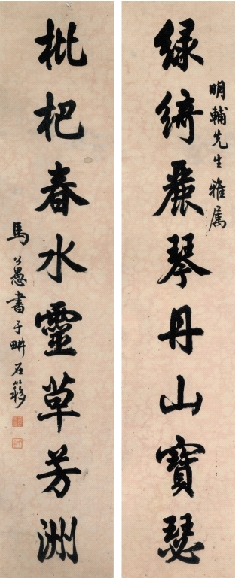 绿綺麗琴丹山寶瑟
明輔先生雅属
枇杷春水靈草芳洲
馬公愚書于畊石簃